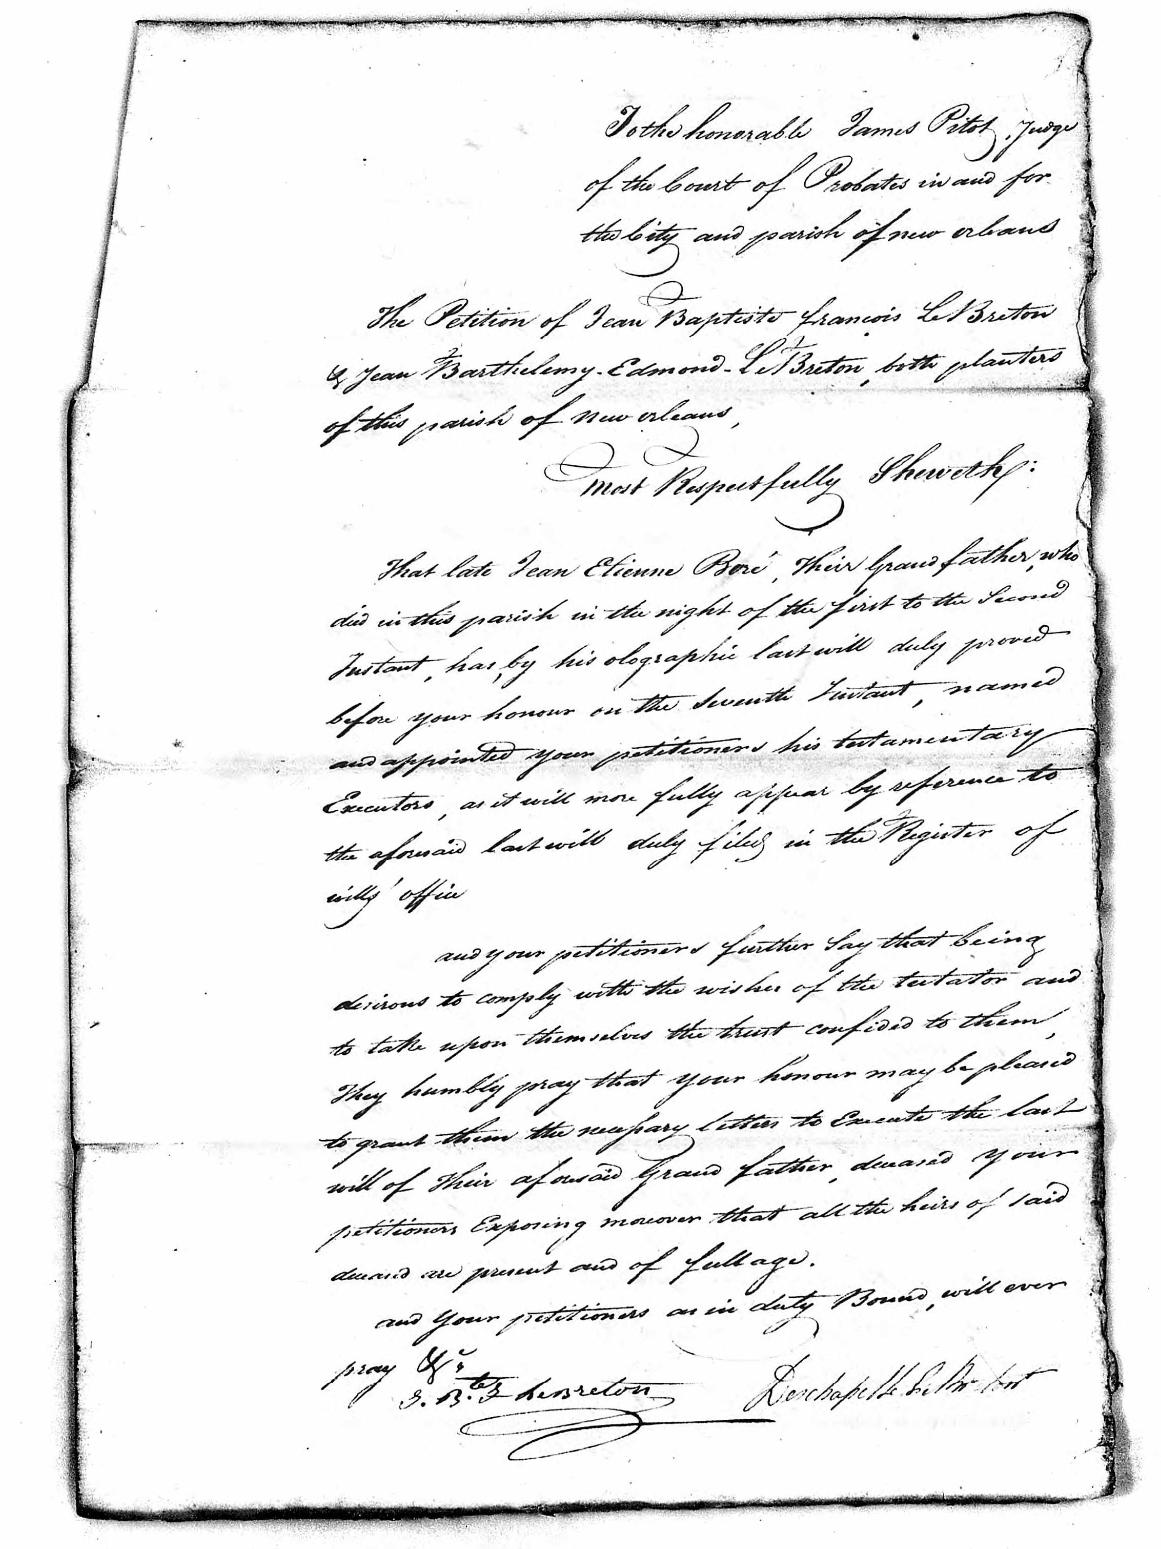 To the honorable James Pitot, Judge
of the Court of Probates in and for
the City and parish of new orleans
The Petition of Jean Baptiste francois Le Breton
& Jean Barthelemy-Edmond-Le Breton, both planters
of this parish of new orleans,
Most Respectfully Sheweth:
That late Jean Etienne Boré, Their Grand father, who
died in this parish in the night of the first to the Second
Instant, has, by his olographic last will duly proved
before your honour on the Seventh Instant, named
and appointed your petitioners his testamentary
Executors, as it will more fully appear by reference to
the aforesaid last will duly filed in the Register of
wills' office
and your petitioners further Say that being
desirous to comply with the wishes of the testator and
to take upon themselves the trust confided to them,
They humbly pray that your honour may be pleased
to grant them the necessary letters to Execute the last
will of Their aforesaid Grand father, deceased your
petitioners Exposing moreover that all the heirs of said
deceased are present and of full age.
and your petitioners as in duty Bound, will ever
pray &c
J. B.te F LeBreton Deschapelle